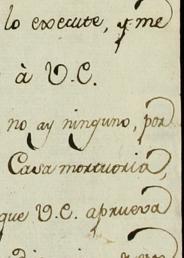 lo execute, y me
à V.E.
no ay ninguno, por
Casa mortuoria,
que V.E. aprueva